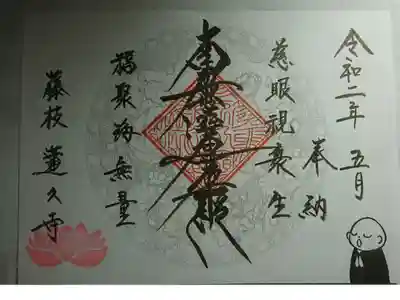 令和二年 五月
奉納
慈眼視衆生
福聚海無量
藤枝 蓮久寺